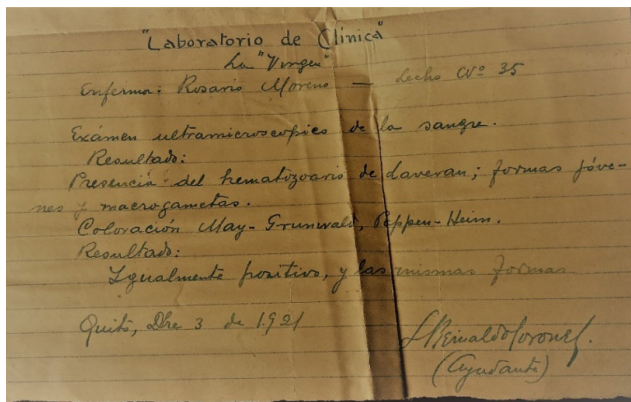 "Laboratorio de Clínica"
La "Virgen"
Enferma: Rosario Moreno — Lecho Nº 35
Exámen ultramicroscopico de la sangre.
Resultado:
Presencia del hematozoario de Laveran; formas jóve-
nes y macrogametas.
Coloración May-Grunwald, Pappen-Heim.
Resultado:
Igualmente positivo, y las mismas formas
Quito, Dbre 3 de 1.921
L Reinaldo Coronel.
(Ayudante)